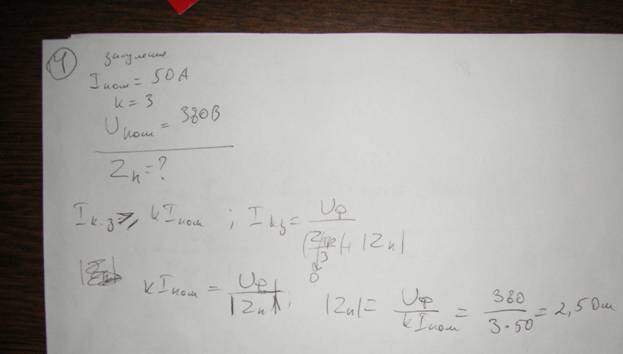 4
зануление
I ном = 50А
k = 3
U ном = 380В
Zп = ?
Iк.з ≥ k Iном ; Iкз = Uф / (|Zтр/3| + |Zп|)
0
k Iном = Uф / |Zп| ; |Zп| = Uф / k Iном = 380 / 3·50 = 2,5 Ом